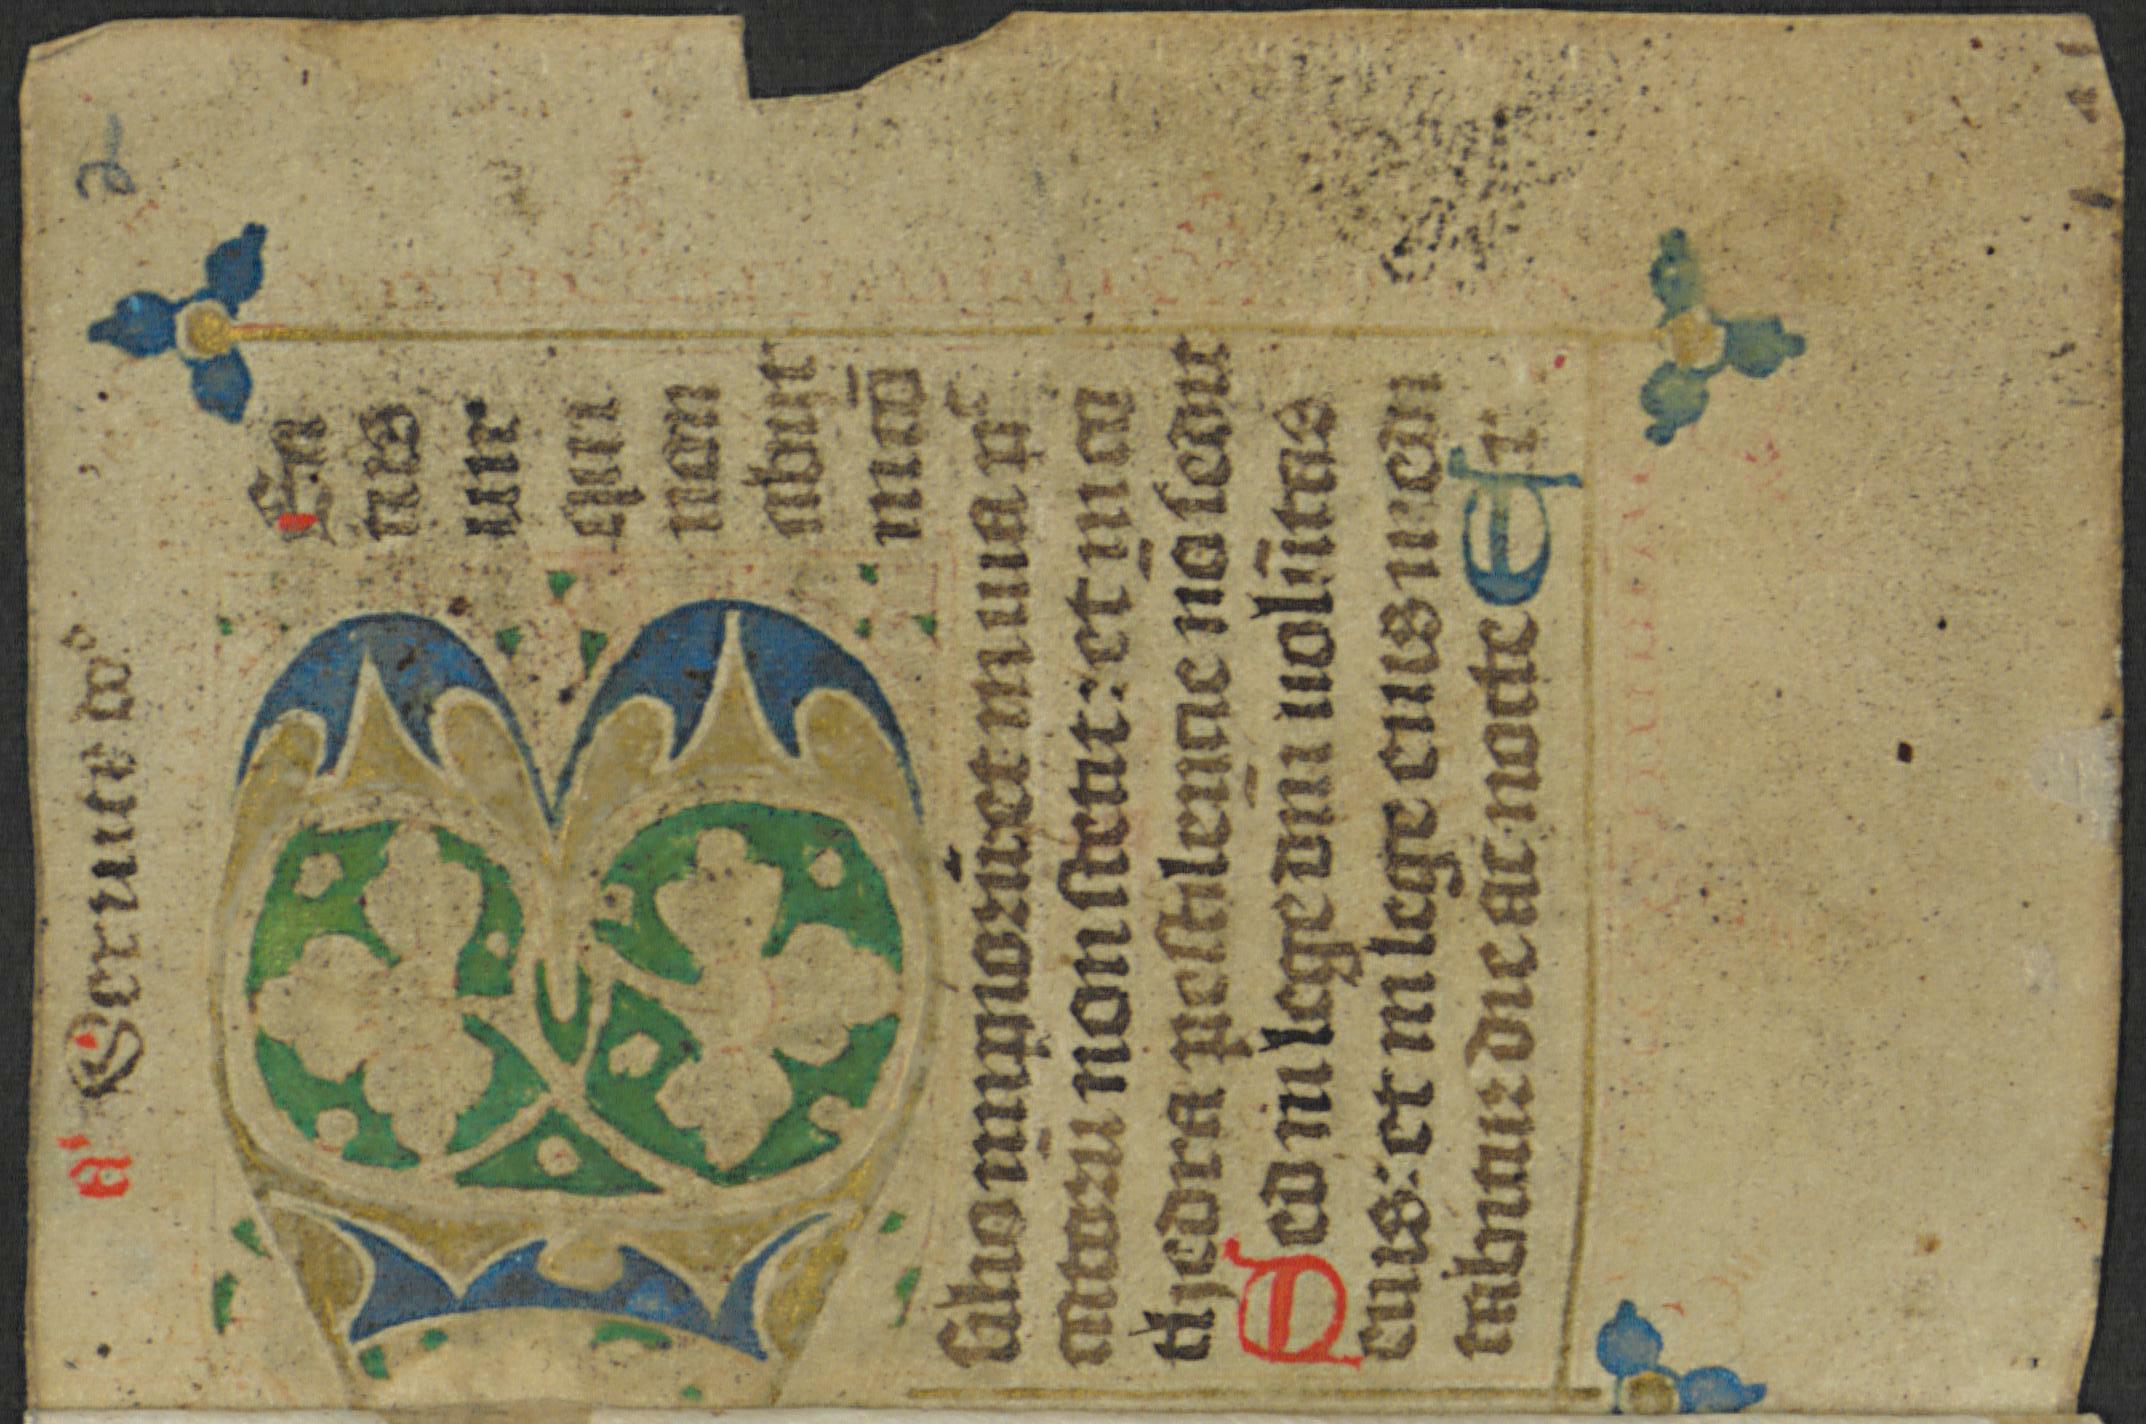 2
a' Seruite do
BEa
tus
uir
qui
non
abijt
in cō
silio impiorū et in uia p̄c
catorū non stetit: et in ca
thedra pestilentie nō sedit
Sed in lege dn̄i uolūtas
eius: et in lege eius medi
tabitur die ac nocte Et